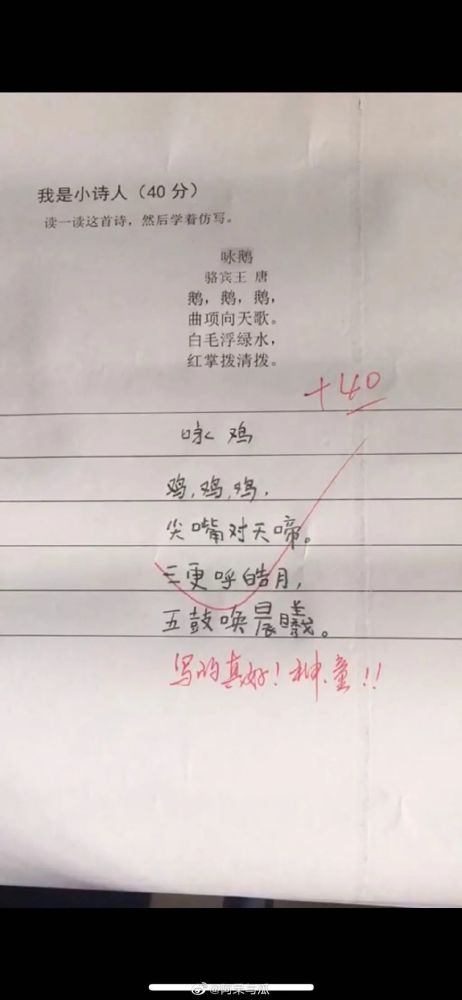 我是小诗人（40 分）
读一读这首诗，然后学着仿写。
咏鹅
骆宾王 唐
鹅，鹅，鹅，
曲项向天歌。
白毛浮绿水，
红掌拨清拨。
+40
咏鸡
鸡,鸡,鸡,
尖嘴对天啼。
三更呼皓月,
五鼓唤晨曦。
写的真好！神童!!
@阿呆与瓜